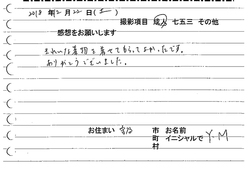 2018年2月22日(土)
撮影項目 成人 七五三 その他
感想をお願いします
きれいな着物を着せてもらってよかったです。
ありがとうございました。
お住まい 市 お名前
町 イニシャルで Y.M
村